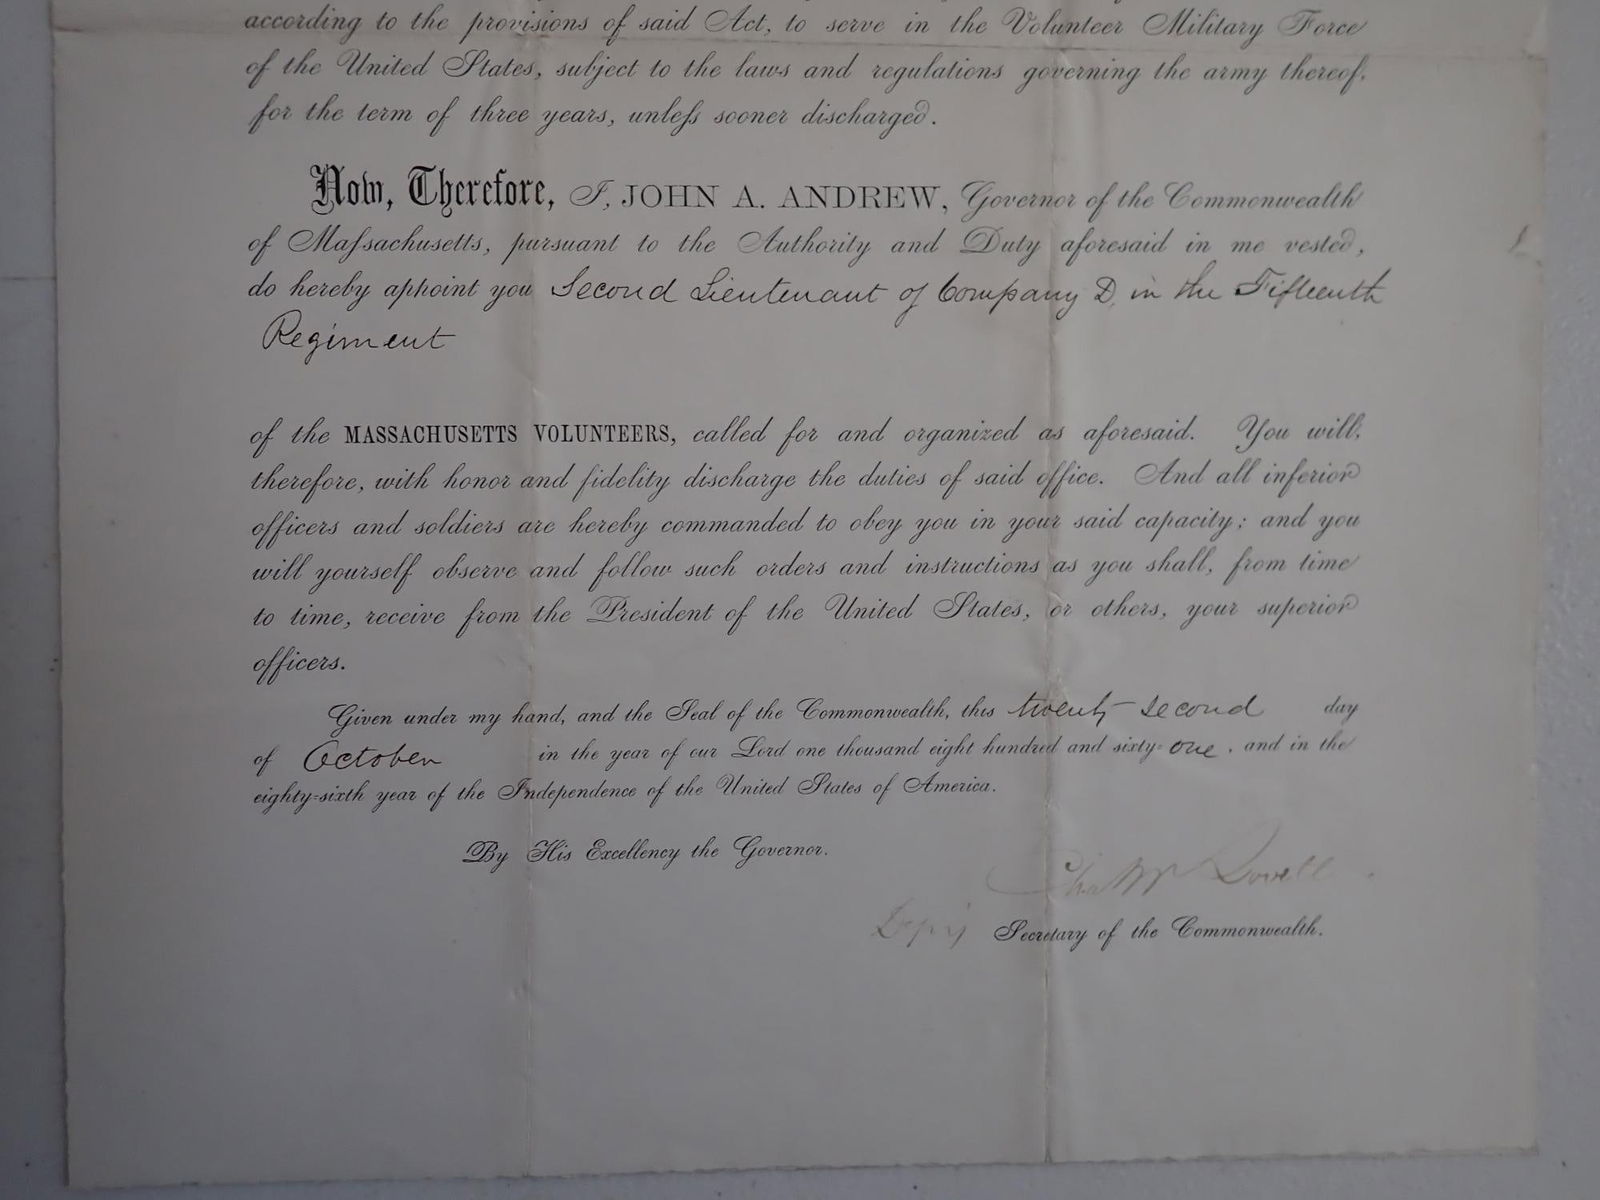 according to the provisions of said Act, to serve in the Volunteer Military Force
of the United States, subject to the laws and regulations governing the army thereof,
for the term of three years, unleſs sooner discharged.
Now, Therefore, I, JOHN A. ANDREW, Governor of the Commonwealth
of Maſsachusetts, pursuant to the Authority and Duty aforesaid in me vested,
do hereby appoint you Second Lieutenant of Company D, in the Fifteenth
Regiment
of the MASSACHUSETTS VOLUNTEERS, called for and organized as aforesaid. You will,
therefore, with honor and fidelity discharge the duties of said office. And all inferior
officers and soldiers are hereby commanded to obey you in your said capacity; and you
will yourself observe and follow such orders and instructions as you shall, from time
to time, receive from the President of the United States, or others, your superior
officers.
Given under my hand, and the Seal of the Commonwealth, this twenty-second day
of October in the year of our Lord one thousand eight hundred and sixty=one, and in the
eighty=sixth year of the Independence of the United States of America.
By His Excellency the Governor.
Chas W Lovell
Depy Secretary of the Commonwealth.